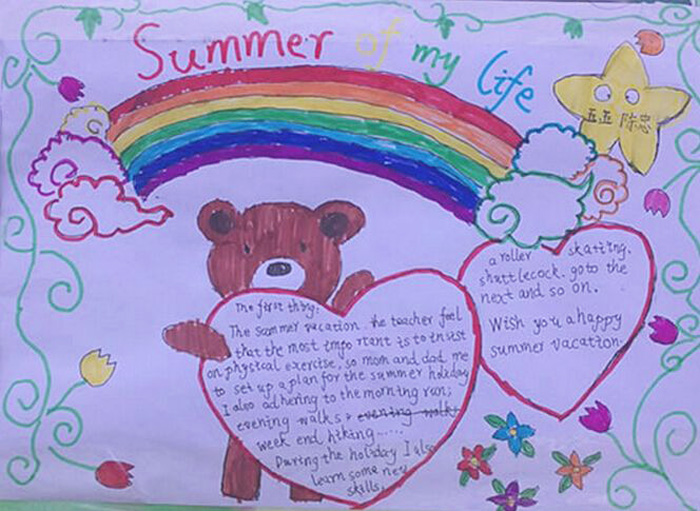 Summer of my life
五五 陈忠
The first thing:
The summer vacation. the teacher feel
that the most important is to insist
on physical exercise, so mom and dad me
to set up a plan for the summer holiday
I also adhering to the morning run;
evening walks, evening walks
week end hiking......
During the holiday I also
learn some new
skills
a roller skating.
shuttlecock. go to the
next and so on.
Wish you a happy
summer vacation.